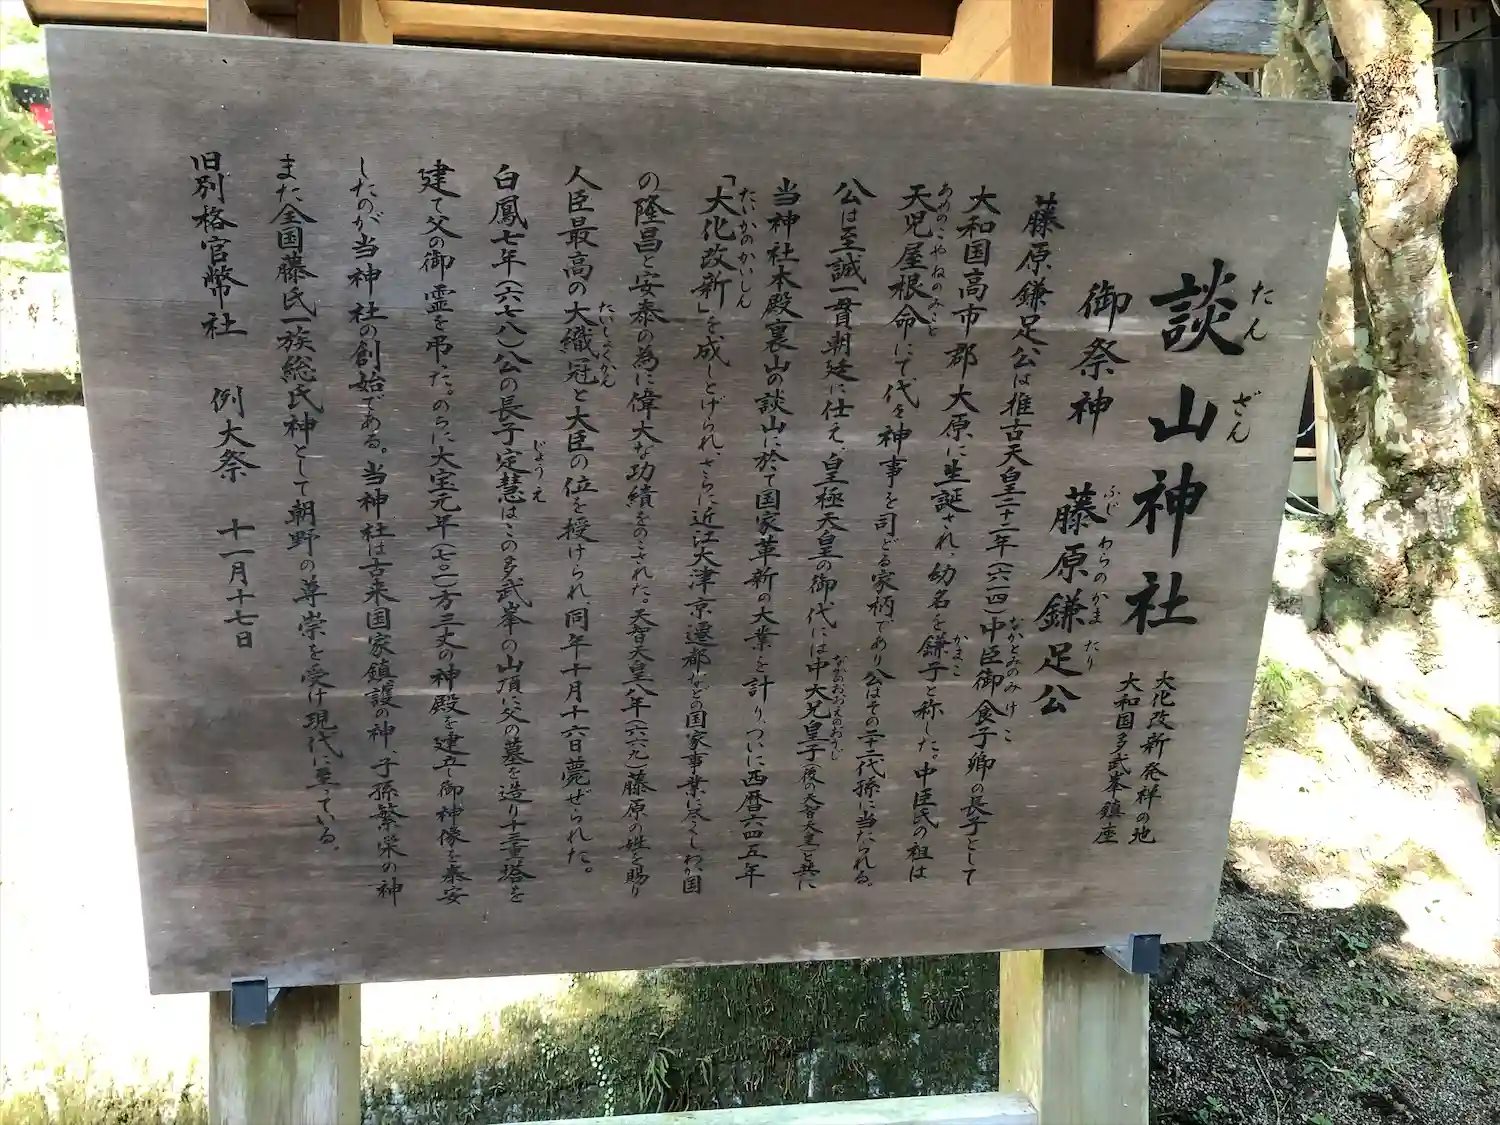 談山神社
たん ざん
大化改新発祥の地
大和国多武峯鎮座
御祭神 藤原鎌足公
ふじ わらのかま たり
藤原鎌足公は推古天皇二十二年(六一四)中臣御食子卿の長子として
なかとみのみ け こ
大和国高市郡大原に生誕され、幼名を鎌子と称した。中臣氏の祖は
かまこ
天児屋根命にて代々神事を司どる家柄であり公はその二十二代孫に当たられる。
あめのこやねのみこと
公は至誠一貫朝廷に仕え、皇極天皇の御代には中大兄皇子(後の天智天皇)と共に
なかのおおえのおうじ
当神社本殿裏山の談山に於て国家革新の大業を計り、ついに西暦六四五年
「大化改新」を成しとげられ、さらに近江大津京遷都などの国家事業に尽くしわが国
たいかのかいしん
の隆昌と安泰の為に偉大な功績をのこされた。天智天皇八年(六六九)藤原の姓を賜り
人臣最高の大織冠と大臣の位を授けられ、同年十月十六日薨ぜられた。
たいしょくかん
白鳳七年(六七八)公の長子定慧はこの多武峯の山頂に父の墓を造り十三重塔を
じょうえ
建て父の御霊を弔った。のちに大宝元年(七〇一)方三丈の神殿を建立し御神像を奉安
したのが当神社の創始である。当神社は古来国家鎮護の神、子孫繁栄の神
また全国藤氏一族総氏神として朝野の尊崇を受け現代に至っている。
旧別格官幣社 例大祭 十一月十七日